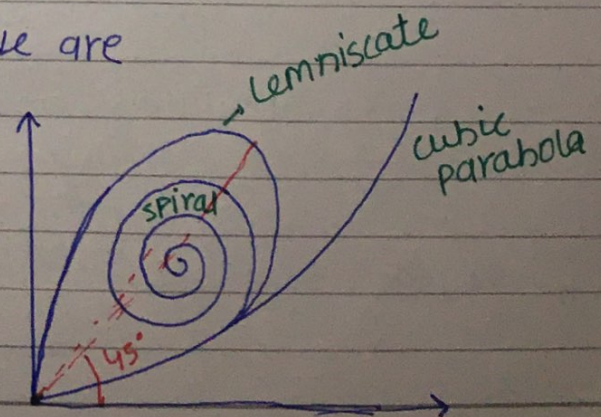 ue are
Lemniscate
cubic
parabola
spiral
45°